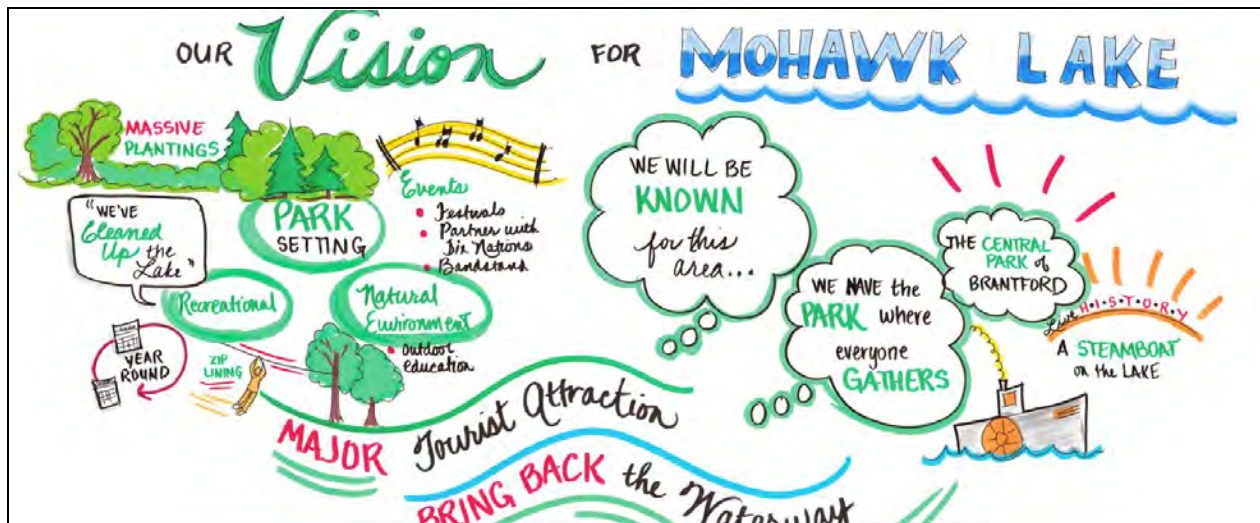 OUR Vision FOR MOHAWK LAKE
MASSIVE
PLANTINGS
"WE'VE
Cleaned
Up the
Lake"
PARK
SETTING
Events
• Festivals
• Partner with
Six Nations
• Bandstand
Recreational
Natural
Environment
• Outdoor
education
YEAR
ROUND
ZIP
LINING
MAJOR Tourist Attraction
BRING BACK the Waterway
WE WILL BE
KNOWN
for this
area...
WE HAVE the
PARK where
everyone
GATHERS
THE CENTRAL
PARK of
BRANTFORD
Live H•I•S•T•O•R•Y
A STEAMBOAT
on the LAKE